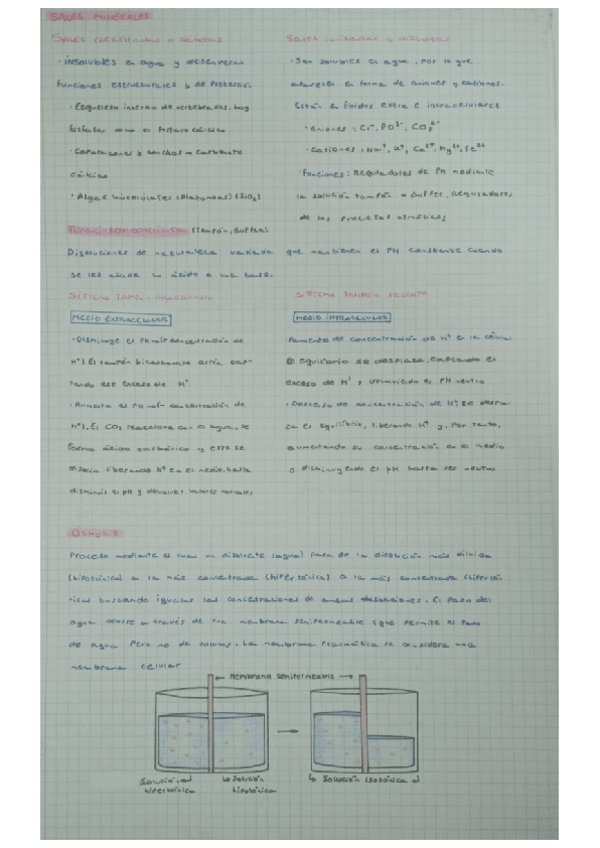 SALES MINERALES
Sales precipitadas o sólidas
· insolubles en agua y desempeñan
funciones estructurales y de protección
· Esqueleto interno de vertebrados, hay
fosfatos como el fosfato cálcico
· Caparazones y conchas → carbonato
cálcico
· Algas microscópicas (Diatomeas) (SiO₂)
Sales ionizadas o disueltas
· Son solubles en agua, por lo que
aparecen en forma de aniones y cationes.
Están en fluidos extra e intracelulares
· Aniones: Cl⁻, PO³⁻, CO₃²⁻
· Cationes: Na⁺, K⁺, Ca²⁺, Mg²⁺, Fe²⁺
· Funciones: Reguladores de PH mediante
la solución tampón o buffer, reguladores
de los procesos osmóticos
(Tampón, Buffer)
Disoluciones de naturaleza variada que mantienen el PH constante cuando
se les añade un ácido o una base.
SISTEMA
MEDIO EXTRACELULAR
· Disminuye el PH concentración de
H⁺). El tampón bicarbonato actúa cap-
tando ese exceso de H⁺
· Aumenta el PH concentración de
H⁺). El CO₂ reacciona con el agua, se
forma ácido carbónico y este se
disocia liberando H⁺ en el medio, hasta
disminuir el pH y devolver valores normales
SISTEMA TAMPÓN FOSFATO
MEDIO INTRACELULAR
· Aumento de concentración de H⁺ en la célula
El equilibrio se desplaza, empleando el
exceso de H⁺ y devolviendo el PH neutro.
· Descenso de concentración de H⁺. Se despla-
za el equilibrio, liberando H⁺ y, por tanto,
aumentando su concentración en el medio
disminuyendo el pH hasta ser neutro
OSMOSIS
Proceso mediante el cual un disolvente (agua) pasa de la disolución más diluida
(hipotónica) a la más concentrada (hipertónica) a la más concentrada (hipertón
ica) buscando igualar las concentraciones de ambas disoluciones. El paso del
agua ocurre a través de una membrana semipermeable (que permite el paso
de agua pero no de solutos. La membrana plasmática se considera una
membrana celular
Membrana semipermeable
Solución
hipertónica
Solución
hipotónica
Solución isotónica